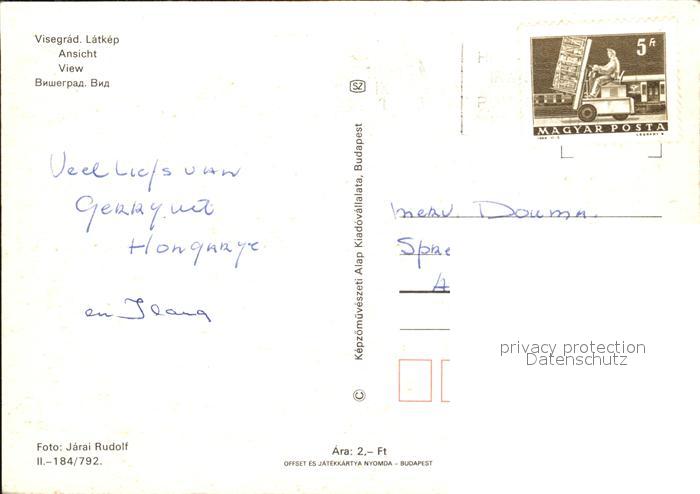 Visegrád. Látkép
Ansicht
View
Вишеград. Вид
SZ
5 Ft
MAGYAR POSTA
Veel liefs van
Gerry uit
Hongarye
en
Képzőművészeti Alap Kiadóvállalata, Budapest
©
mevr. Douma.
Spre
A
privacy protection
Datenschutz
Foto: Járai Rudolf
II.–184/792.
Ára: 2,– Ft
OFFSET ÉS JÁTÉKKÁRTYA NYOMDA – BUDAPEST